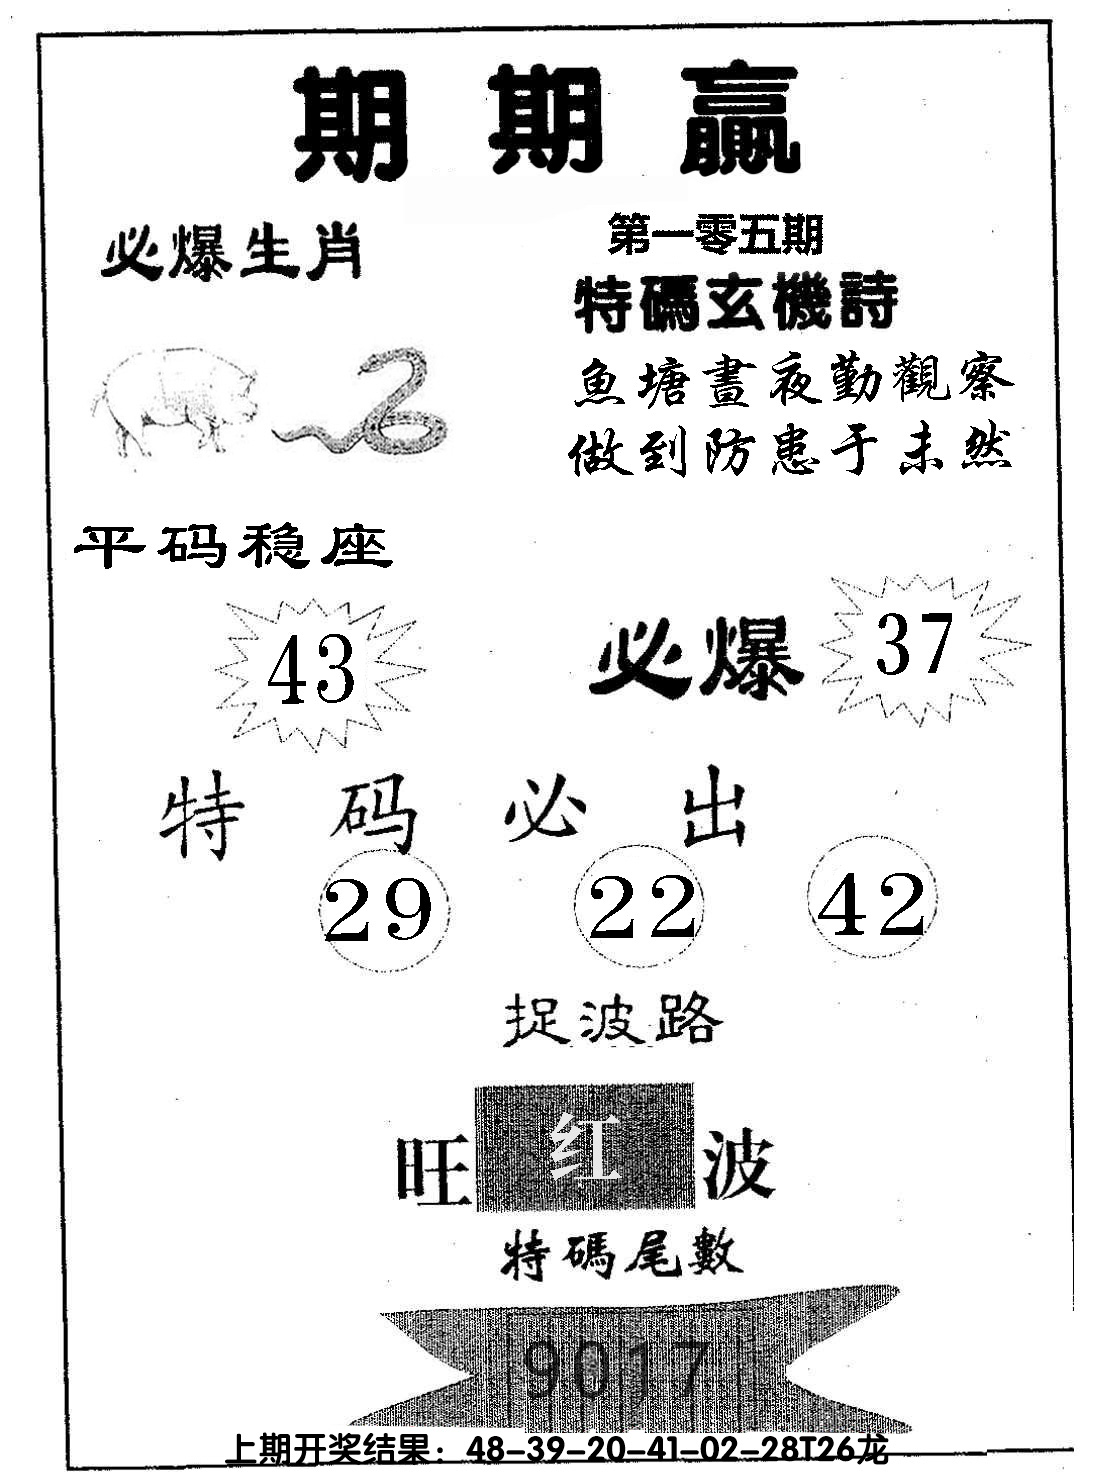 期期贏
必爆生肖
第一零五期
特碼玄機詩
魚塘晝夜勤觀察
做到防患于未然
平码稳座
43
必爆 37
特码必出
29 22 42
捉波路
旺红波
特碼尾數
9017
上期开奖结果：48-39-20-41-02-28T26龙